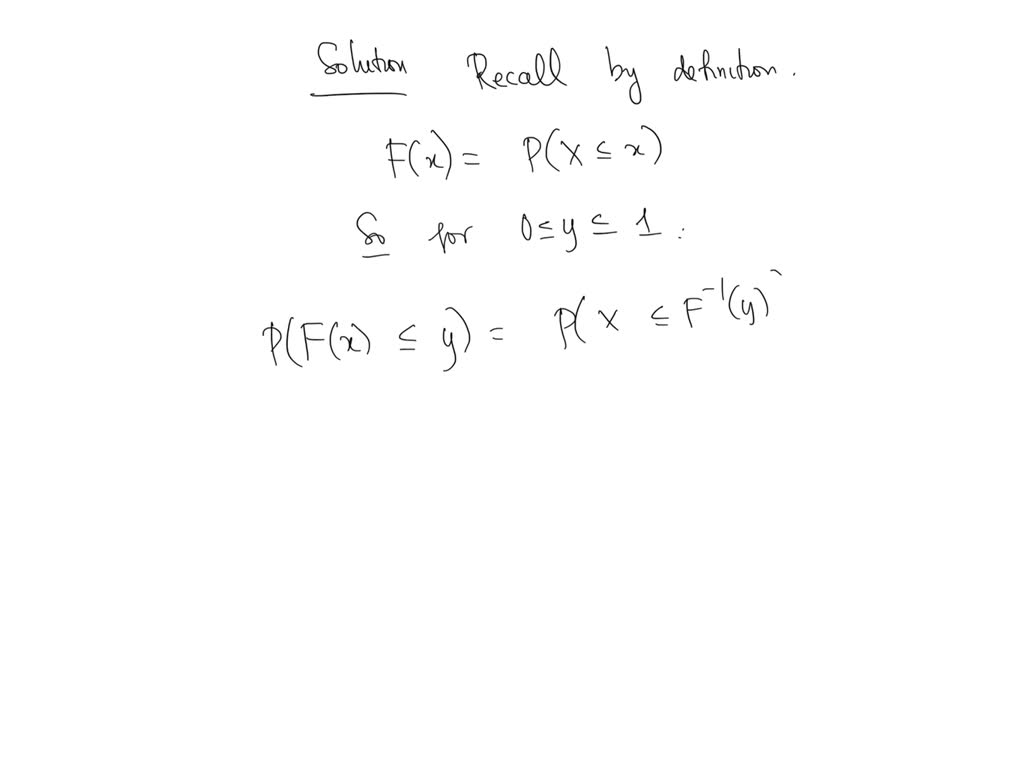 Solution Recall by definition.
F(x) = P(X ≤ x)
So for 0 ≤ y ≤ 1 :
P(F(x) ≤ y) = P( X ≤ F⁻¹(y)